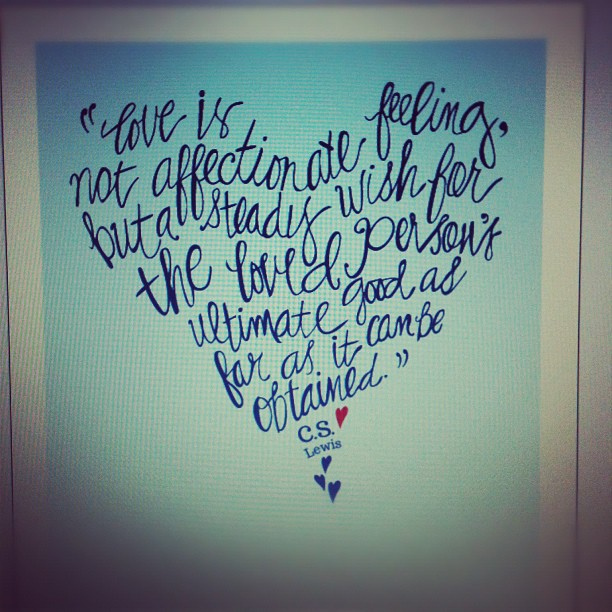 "love is feeling,
not affectionate
but a steady wish for
the loved person's
ultimate good as
far as it can be
obtained."
C.S.
Lewis